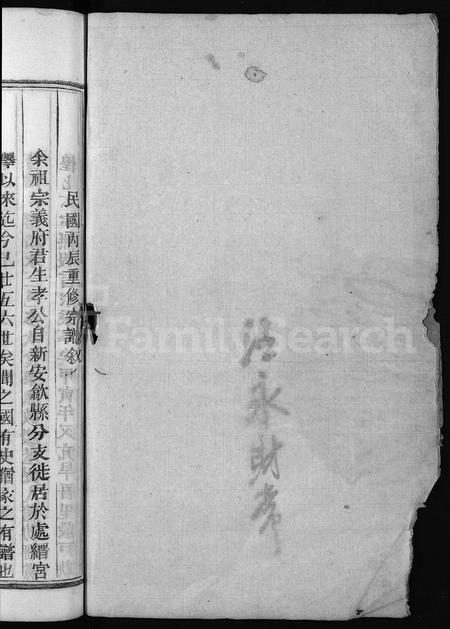 民國丙辰重修宗譜敘
余祖宗義府君生孝公自新安歙縣分支徙居於處縉宮
以來迄今已廿五六世矣聞之國有史猶家之有譜也
永財
FamilySearch